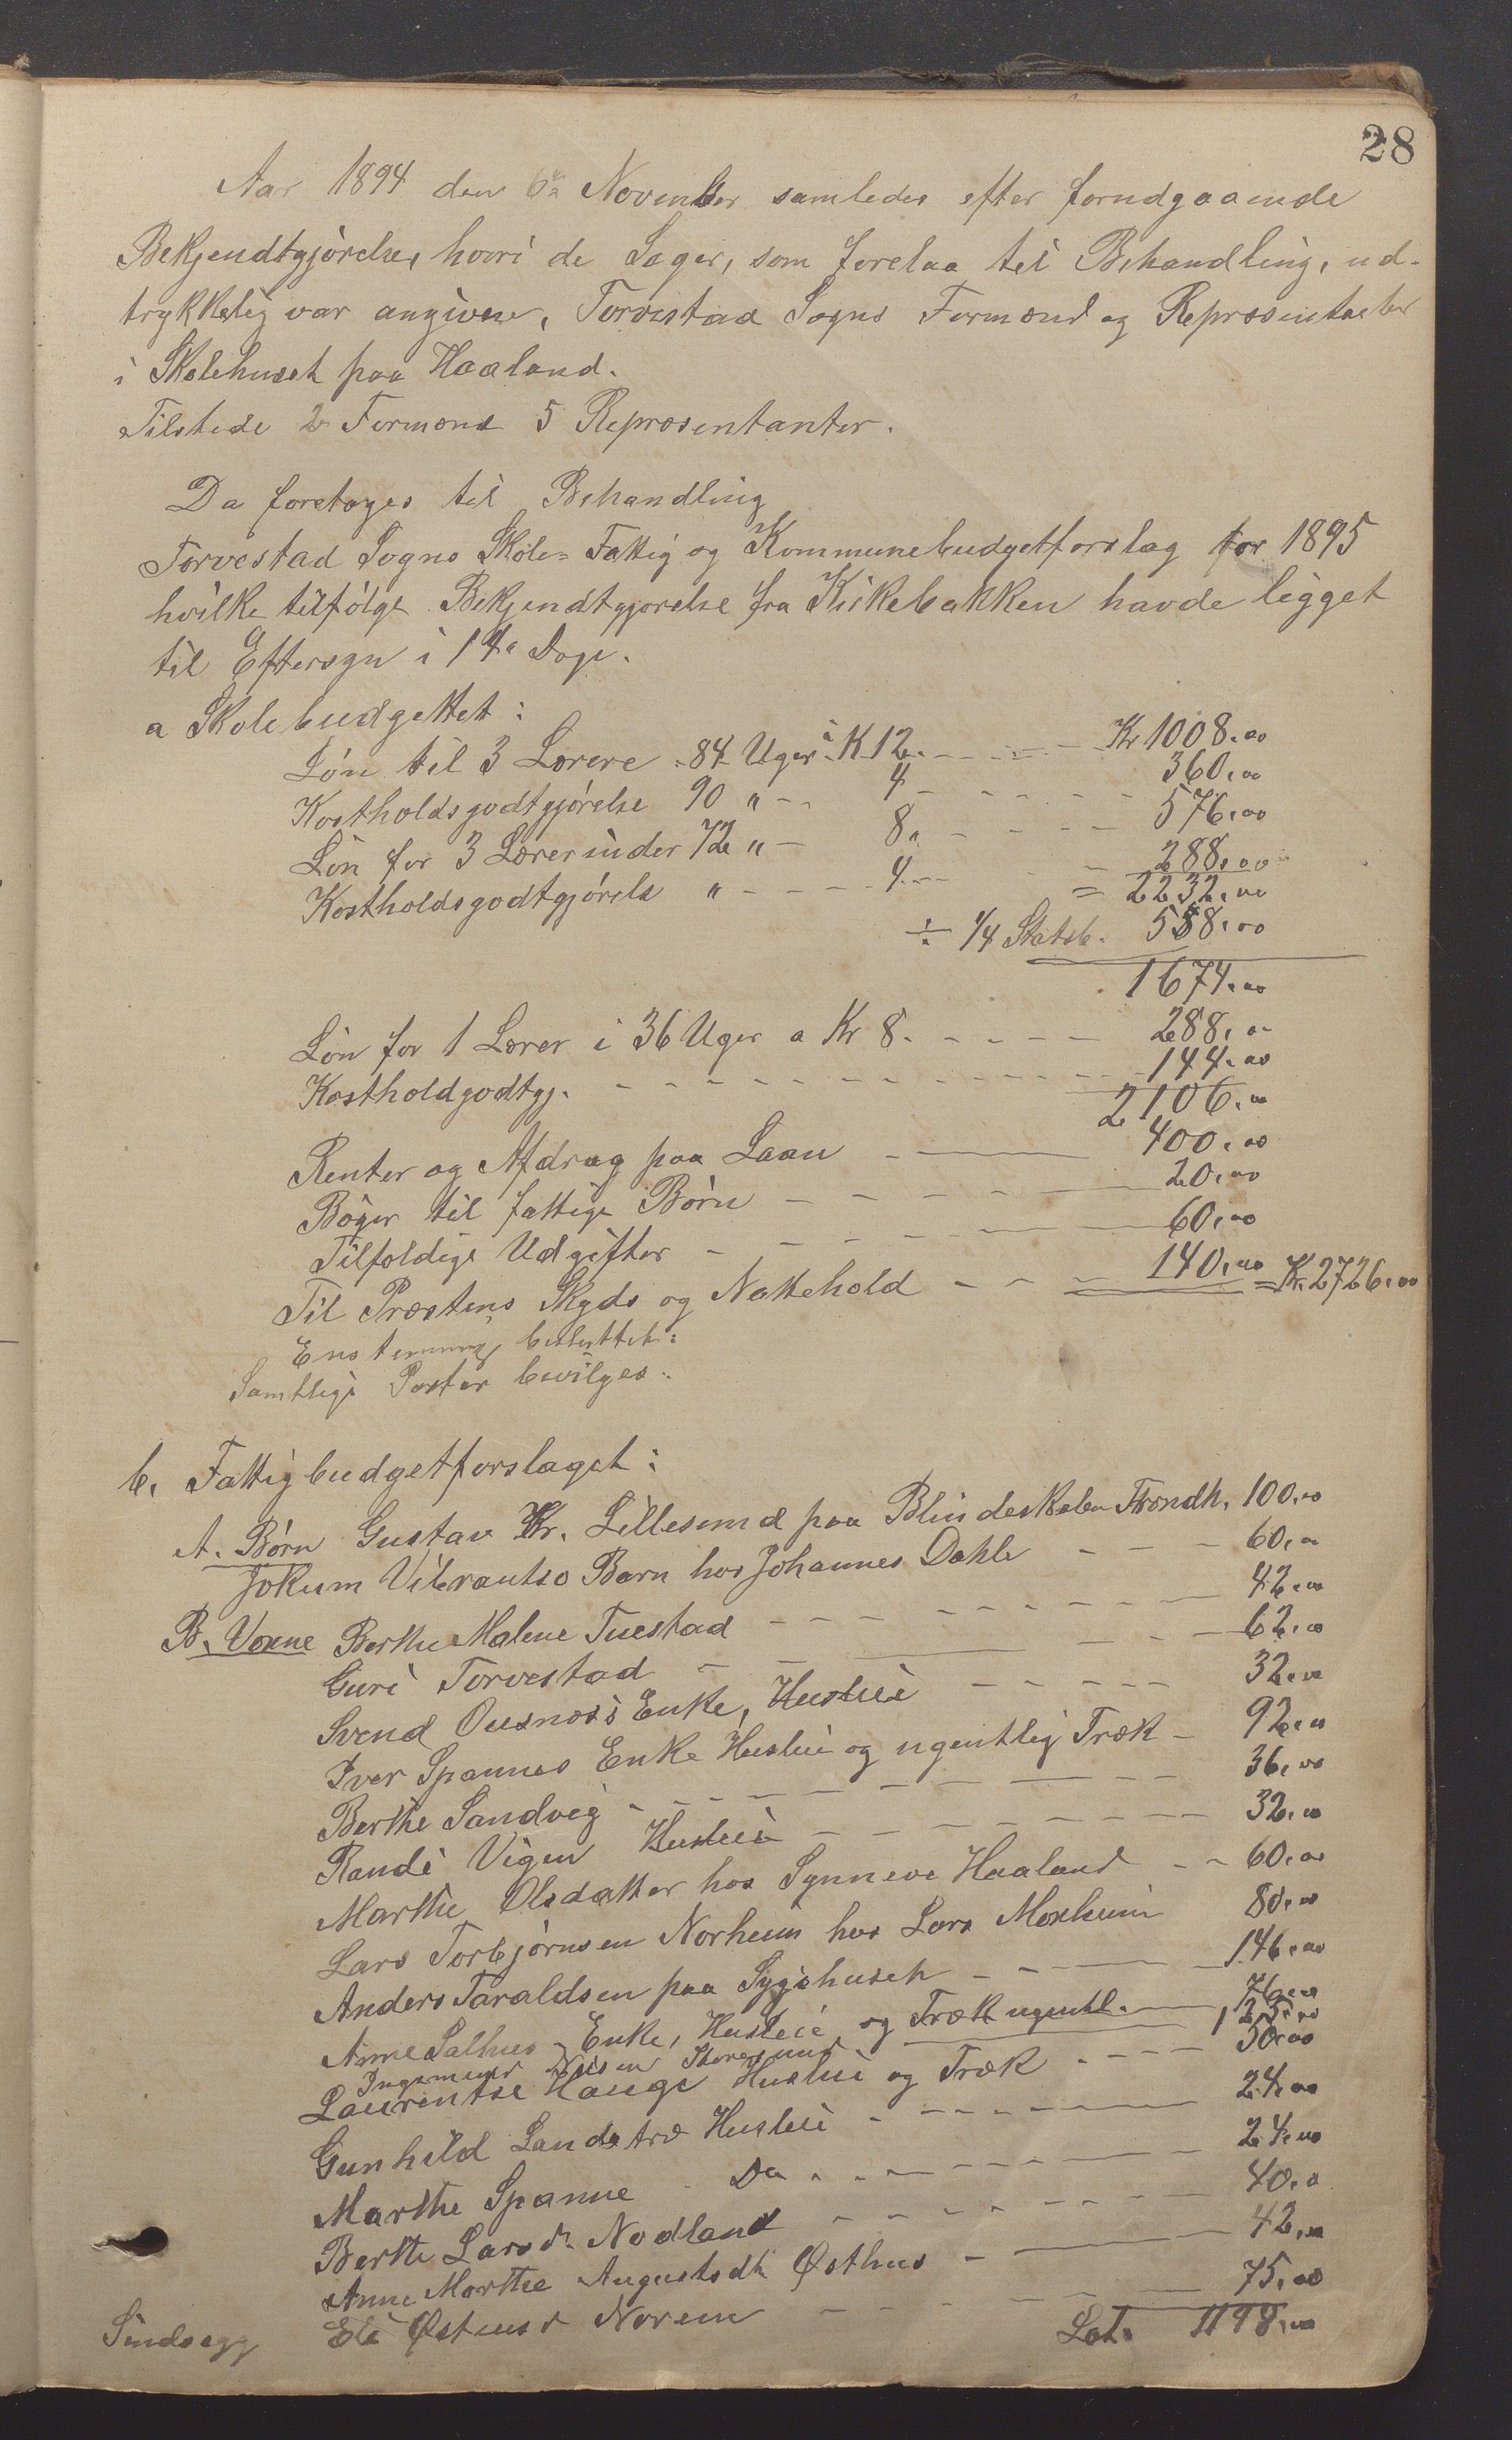 28
Aar 1894 den 6te November samledes efter forudgaaende
Bekjendtgjørelse, hvori de Sager, som forelaa til Behandling, ud-
trykkelig var angivne, Torvestad Sogns Formænd og Repræsentanter
i Skolehuset paa Haaland.
Tilstede 2 Formænd 5 Repræsentanter.
Da foretoges til Behandling
Torvestad Sogns Skole- Fattig og Kommunebudgetforslag for 1895
hvilke tilfølge Bekjendtgjørelse fra Kirkebakken havde ligget
til Eftersyn i 14 Dage.
a Skolebudgettet:
Løn til 3 Lærere 84 Uger à K 12. Kr 1008.00
Kostholdsgodtgjørelse 90 " 4 360.00
Løn for 3 Lærerinder 72 " 8 " 576.00
Kostholdsgodtgjørelse " 4 288.00
= 2232.00
÷ 1/4 Statsb. 558.00
1674.00
Løn for 1 Lærer i 36 Uger a Kr 8. 288.00
Kostholdgodtgj. 144.00
2106.00
Renter og Afdrag paa Laan 400.00
Bøger til fattige Børn 20.00
Tilfoldige Udgifter 60.00
Til Præstens Skyds og Nattehold 140.00 = Kr. 2726.00
Enstemmig besluttet:
Samtlige Poster bevilges.
b. Fattigbudgetforslaget:
A. Børn Gustav Kr. Lillesund paa Blindeskolen Trondh. 100.00
Jokum Vibrantso Barn hos Johannes Dahle 60.00
B. Voxne Berthe Malene Tuestad 42.00
Guri Torvestad 62.00
Svend Ousnæs's Enke, Husleie 32.00
Iver Spannes Enke Husleie og ugentlig Træk 92.00
Berthe Sandvig 36.00
Randi Vigen Husleie 32.00
Marthe Olsdatter hos Synneve Haaland 60.00
Lars Torbjørnsen Norheim hos Lars Moxheim 80.00
Anders Taraldsen paa Sygehuset 146.00
Anne Salhus Enke, Husleie og Træk ugentl. 76.00
Ingemund Storesund 125.00
Laurentse Hauge Husleie og Træk 50.00
Gunhild Landstrø Husleie 24.00
Marthe Spanne Do 24.00
Berthe Larsd. Nodland 40.00
Anne Marthe Augustsdt Østhus 42.00
Eli Østensd Norem 75.00
Lat. 1198.00
Sindssyg